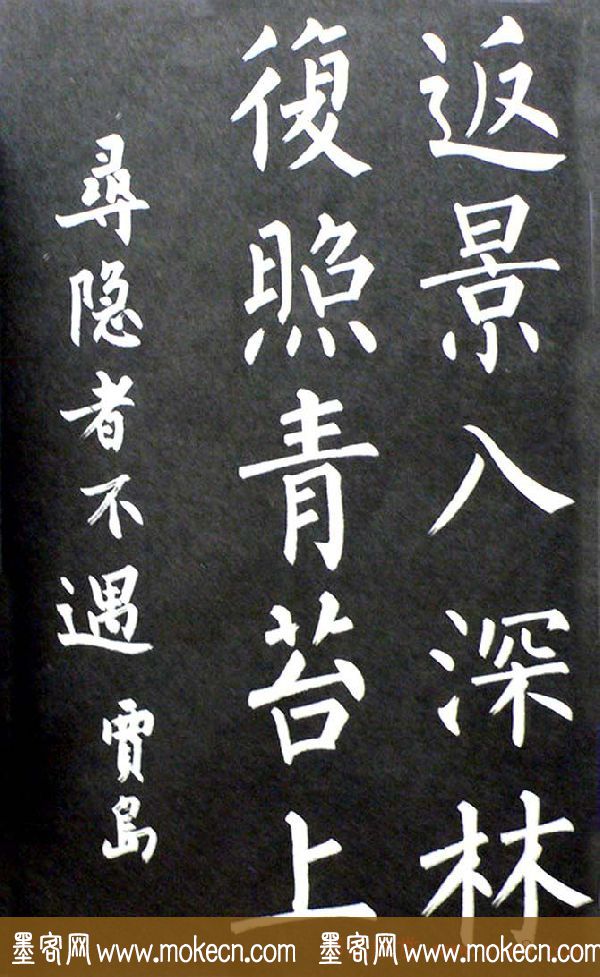 返景入深林
復照青苔上
尋隐者不遇 賈島
墨客网 www.mokecn.com 墨客网 www.mokecn.com